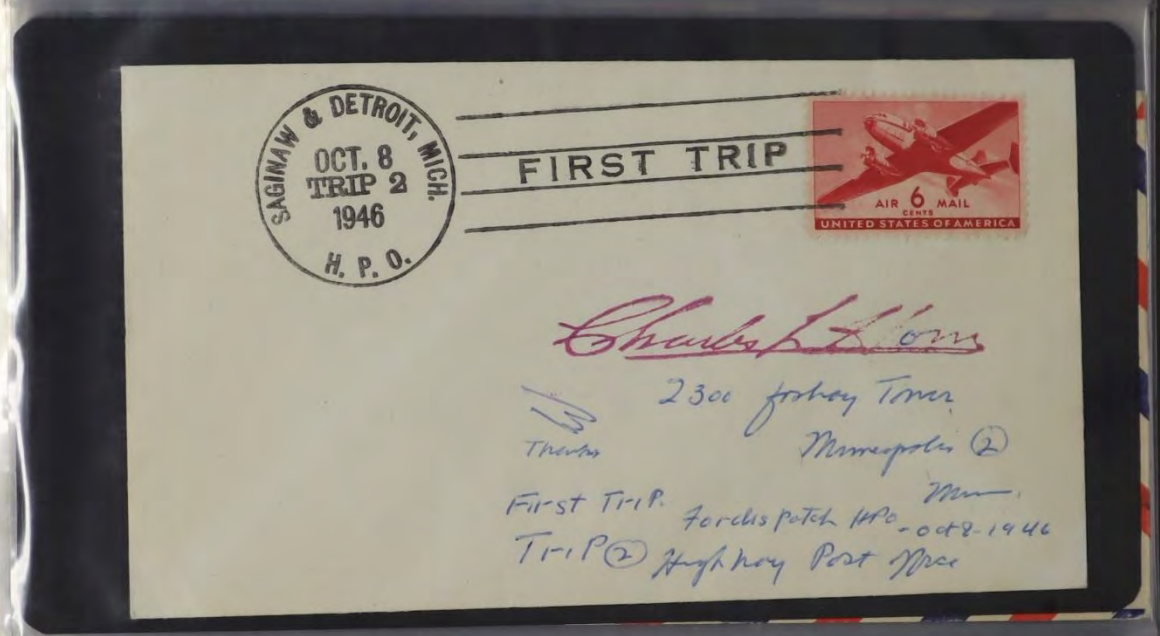 SAGINAW & DETROIT, MICH.
OCT. 8
TRIP 2
1946
H. P. O.
FIRST TRIP
AIR 6 MAIL
CENTS
UNITED STATES OF AMERICA
Charles L Horn
2300 Foshay Tower
Minneapolis 2
Minn.
Thanks
First Trip.
For dispatch HPO - Oct 8-1946
Trip 2 Highway Post Office